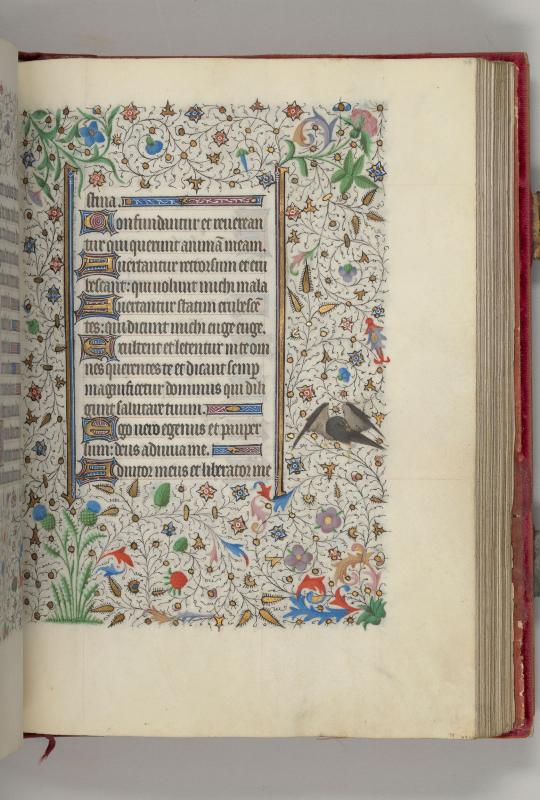 stina.
Confundantur et reuerean
tur qui querunt animã meam.
Auertantur retrorsum et eru
bescant: qui uolunt michi mala
Auertantur statim erubescẽ
tes: qui dicunt michi euge euge.
Exultent et letentur in te om
nes querentes te et dicant semp
magnificetur dominus qui dili
gunt salutare tuum.
Ego uero egenus et pauper
sum: deus adiuua me.
Adiutor meus et liberator me